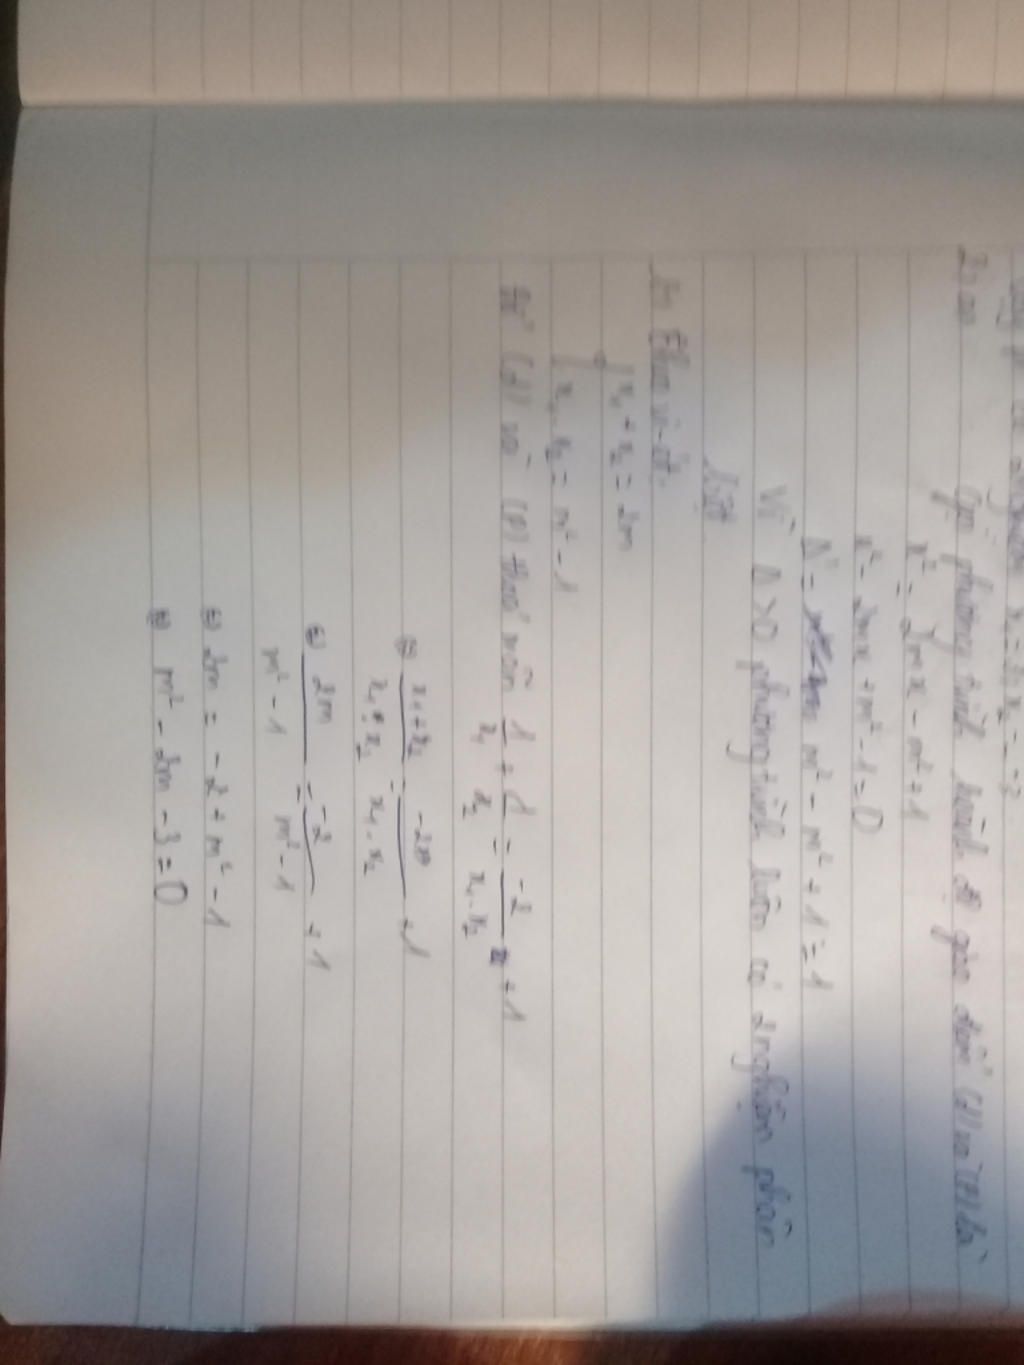 x₁ = 3, x₂ = -3
Bài
Gọi phương trình hoành độ giao điểm (d) và (P) là
x² = 2mx - m² + 1
x² - 2mx + m² - 1 = 0
Δ' = m² - m² + 1 = 1
Vì Δ > 0 phương trình luôn có 2 nghiệm phân
biệt
Theo vi-ét:
{ x₁ + x₂ = 2m
x₁ . x₂ = m² - 1
Để (d) và (P) thoả mãn 1/x₁ + 1/x₂ = -2/x₁.x₂ + 1
⇔ x₁+x₂/x₁.x₂ = -2/x₁.x₂ + 1
⇔ 2m/m² - 1 = -2/m² - 1 + 1
⇔ 2m = -2 + m² - 1
⇔ m² - 2m - 3 = 0